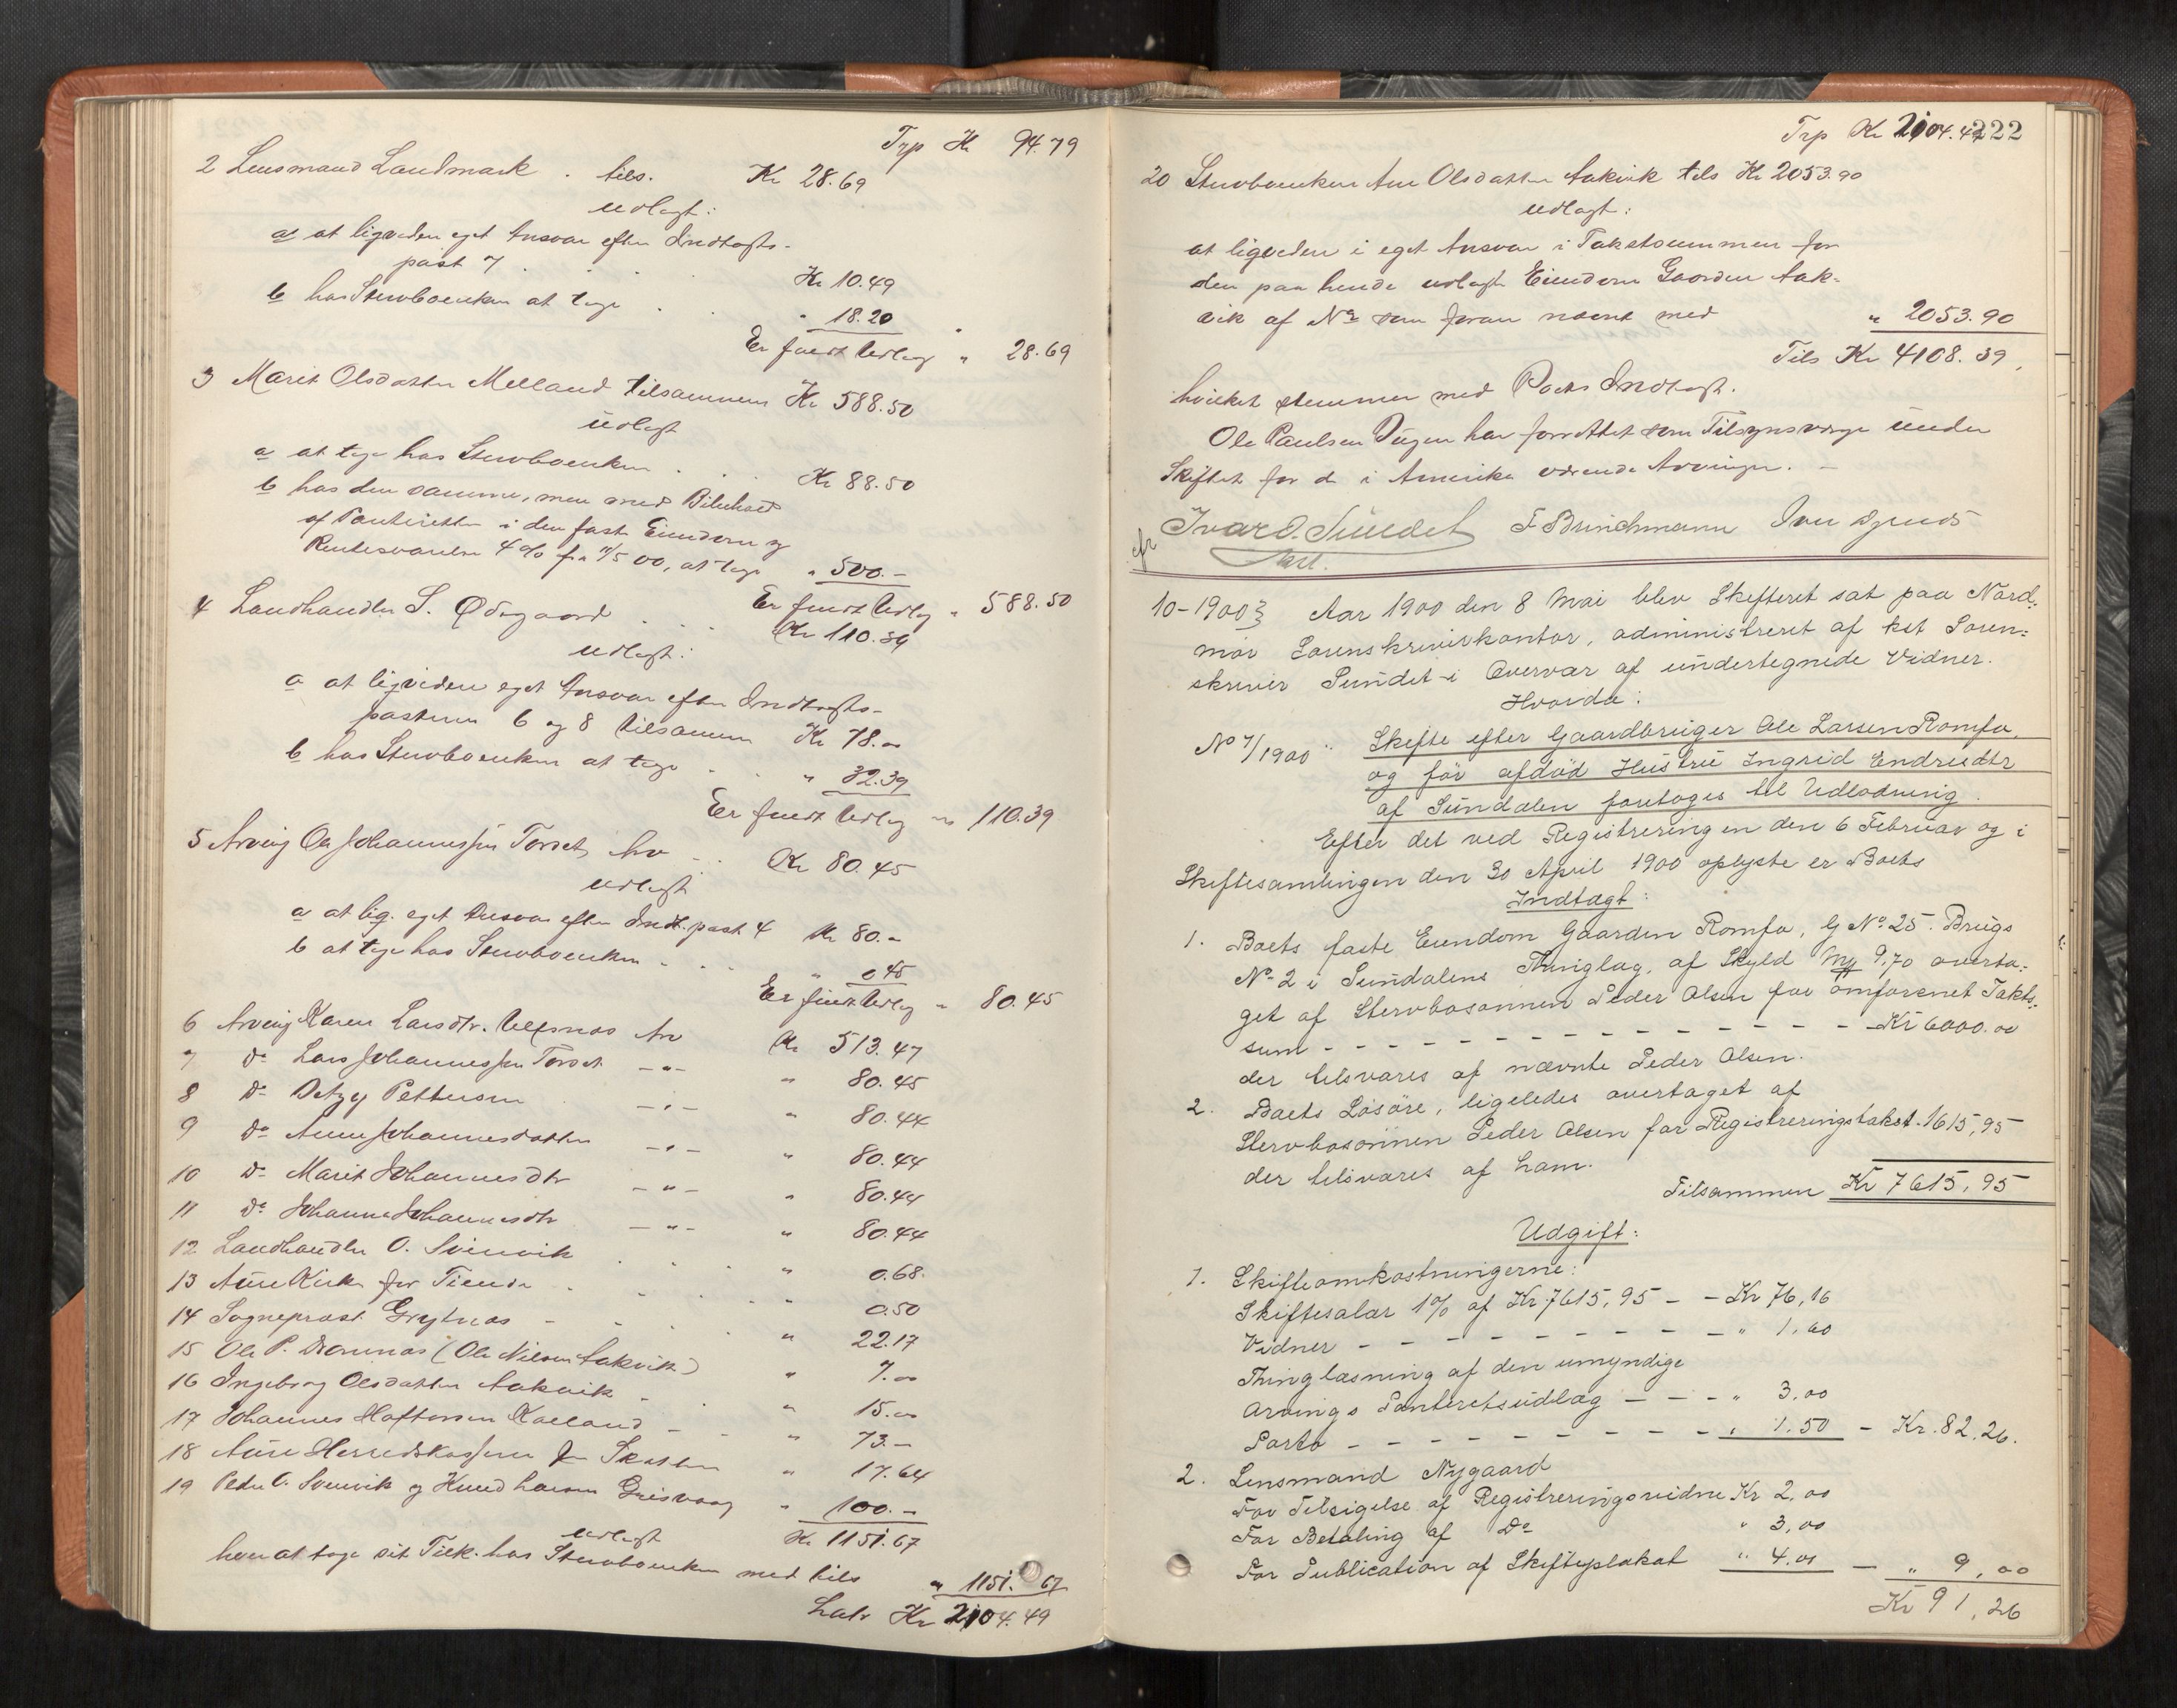 Trp Kr 94.79
2 Lensmand Landmark . tils. Kr 28.69
Udlagt:
a at ligvidere eget Ansvar efter Indtægts-
post 7 . . . Kr 10.49
b hos Stervboenken at tage . . " 18.20
Er fuldt Udlæg " 28.69
3 Marit Olsdatter Melland tilsammen Kr 588.50
Udlagt
a at tage hos Stervboenken . . Kr 88.50
b hos den samme, men med Bibehold
af Panteretten i den faste Eiendom og
Rentesvarelse 4 % fra 11/5 00, at tage " 500.-
Er fuldt Udlæg " 588.50
4 Landhandler S. Ødegaard . . . Kr 110.39
Udlagt:
a at ligvidere eget Ansvar efter Indtægts-
posterne 6 og 8 tilsammen Kr 78.00
b hos Stervboenken at tage . . " 32.39
Er fuldt Udlæg " 110.39
5 Arving Ole Johannessen Torset, Arv . . Kr 80.45
Udlagt
a at lig. eget Ansvar efter Indt. post 4 Kr 80.-
b at tage hos Stervboenken . . . " 0 45
Er fuldt Udlæg " 80.45
6 Arving Karen Larsdtr. Ulfsnæs Arv Kr 513.47
7 Do Lars Johannessen Torset -"- " 80.45
8 Do Petersen -"- " 80.44
9 Do Anne Johannesdatter -"- " 80.44
10 Do Marit Johannesdtr -"- " 80.44
11 Do Johanna Johannesdtr -"- " 80.44
12 Landhandler O. Svinvik . . . " 0.68.
13 Aure Kirke for Tiende . . . " 0.50
14 Sogneprest Grytnæs - . . . " 22.17
15 Ole P. Dromnæs (Ole Nilsen Aakvik) " 7.00
16 Ingeborg Olsdatter Aakvik . . " 15.00
17 Johannes Haftorsen Kaeland - - " 73.-
18 Aure Herredskasserer for Skatter " 17.64
19 Peder O. Svinvik og Knud Larsen Grisvaag " 100.-
Kr 1151.67
Udlagt
hver at tage sit Tilk. hos Stervboenken med tils " 1151.67
Lats Kr 2104.49
Trp Kr 2104.49 222
20 Stervboenken Ane Olsdatter Aakvik tils Kr 2053.90
Udlagt:
at ligvidere i eget Ansvar i Takstsummen for
den paa hende udlagte Eiendom Gaarden Aak-
vik af No som foran nævnt med " 2053.90
Tils Kr 4108.39,
hvilket stemmer med Boets Indtægt.
Ole Paulsen Vaagen har forrettet som Tilsynsverge under
Skiftet for de i Amerika værende Arvinger. -
Ivar O. Sundet F Brinchmann Iver
cfr kst.
10-1900} Aar 1900 den 8 Mai blev Skifteret sat paa Nord-
mør Sorenskriverkontor, administreret af kst Soren-
skriver Sundet i Overvær af undertegnede Vidner.
Hvorda:
No 7/1900 Skifte efter Gaardbruger Ole Larsen Romfo,
og før afdød Hustru Ingrid Endresdtr
af Sundalen foretoges til Udlodning.
Efter det ved Registreringen den 6 Februar og i
Skiftesamlingen den 30 April 1900 oplyste er Boets
Indtægt:
1. Boets faste Eiendom Gaarden Romfo, G No 25. Brugs
No 2 i Sundalens Thinglag, af Skyld Mk 9.70 overta-
get af Stervbosønnen Peder Olsen for omforenet Takst-
sum - - - - - - - - - - Kr 6000.00
der tilsvares af nævnte Peder Olsen.
2. Boets Løsøre, ligeledes overtaget af
Stervbosønnen Peder Olsen for Registreringstakst. 1615,95
der tilsvares af ham.
Tilsammen Kr 7615,95
Udgift:
1. Skifteomkostningerne:
Skiftesalær 1% af Kr 7615,95 - - Kr 76,16
Vidner - - - - - - - - - " 1.60
Thinglæsning af den umyndige
Arvings Panteretsudlæg - - - " 3,00
Porto - - - - - - - - - " 1.50 - Kr. 82,26.
2. Lensmand Nygaard
For Tilsigelse af Registreringsvidne Kr 2.00
For Betaling af Do " 3,00
For Publication af Skifteplakat " 4.00 - " 9,00
Kr 91,26